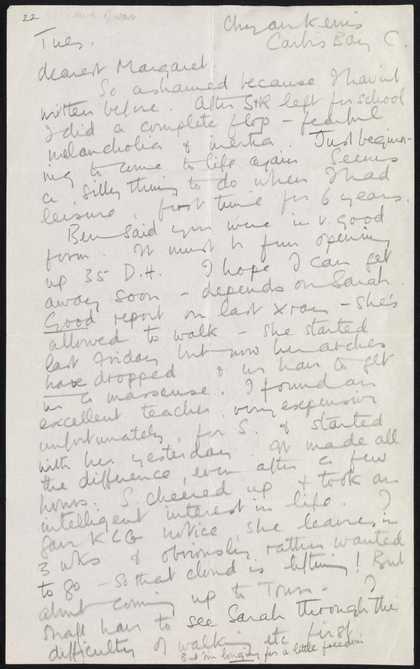 22
Chy an Kerris
Carbis Bay C.
Tues.
dearest Margaret
So ashamed because I havint
written before. After S & R left for school
I did a complete flop – fearful
melancholia & inertia. Just beginn-
ing to come to life again. Seems
a silly thing to do when I had
leisure, first time for 6 years.
Ben said you were in v. good
form. It must be fun opening
up 35 D.H. I hope I can get
away soon – depends on Sarah.
Good report on last Xray – She's
allowed to walk – She started
last Friday but now her arches
have dropped & we have to get
in a masseuse. I found an
excellent teacher, very expensive
unfortunately, for S. & started
with her yesterday. It made all
the difference, even after a few
hours. S. cheered up & took an
intelligent interest in life. I
gave K C G notice, she leaves in
3 wks & obviously rather wanted
to go – so that cloud is lifting! But
about coming up to Town. I
shall have to see Sarah through the
difficulty of walking etc first
But I'm longing for a little freedom